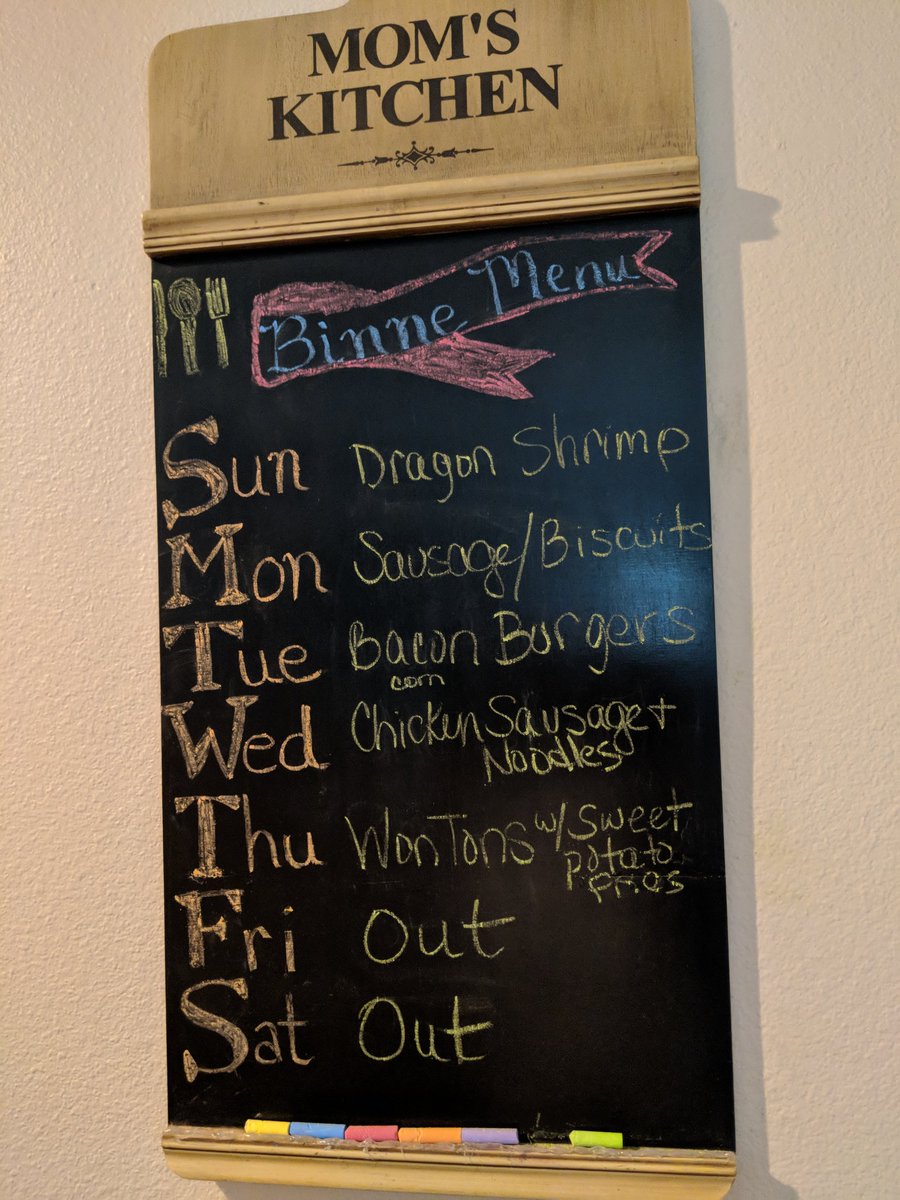 MOM'S
KITCHEN
Binne Menu
Sun Dragon Shrimp
Mon Sausage/Biscuits
Tue Bacon Burgers
corn
Wed Chicken Sausage +
Noodles
Thu WonTons w/ sweet
potato
fries
Fri Out
Sat Out